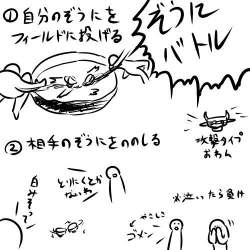 ぞうに
バトル
①自分のぞうにを
フィールドに投げる
攻撃タイプ
おわん
②相手のぞうにをののしる
白みそって
とりにくとか
ないわ
やさしい
ゴメン
※泣いたら負け